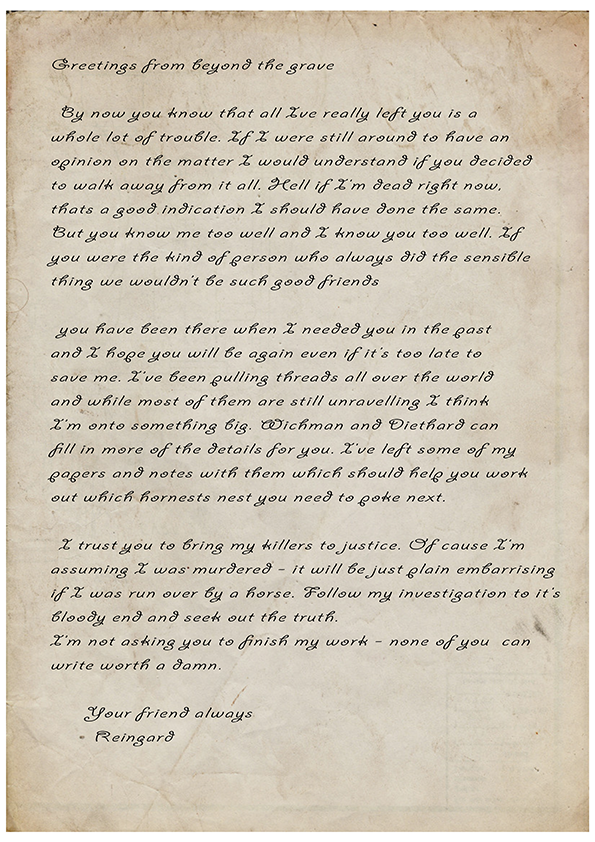 Greetings from beyond the grave
By now you know that all I've really left you is a
whole lot of trouble. If I were still around to have an
opinion on the matter I would understand if you decided
to walk away from it all. Hell if I'm dead right now,
thats a good indication I should have done the same.
But you know me too well and I know you too well. If
you were the kind of person who always did the sensible
thing we wouldn't be such good friends
you have been there when I needed you in the past
and I hope you will be again even if it's too late to
save me. I've been pulling threads all over the world
and while most of them are still unravelling I think
I'm onto something big. Wichman and Diethard can
fill in more of the details for you. I've left some of my
papers and notes with them which should help you work
out which hornests nest you need to poke next.
I trust you to bring my killers to justice. Of cause I'm
assuming I was murdered - it will be just plain embarrising
if I was run over by a horse. Follow my investigation to it's
bloody end and seek out the truth.
I'm not asking you to finish my work - none of you can
write worth a damn.
Your friend always
Reingard